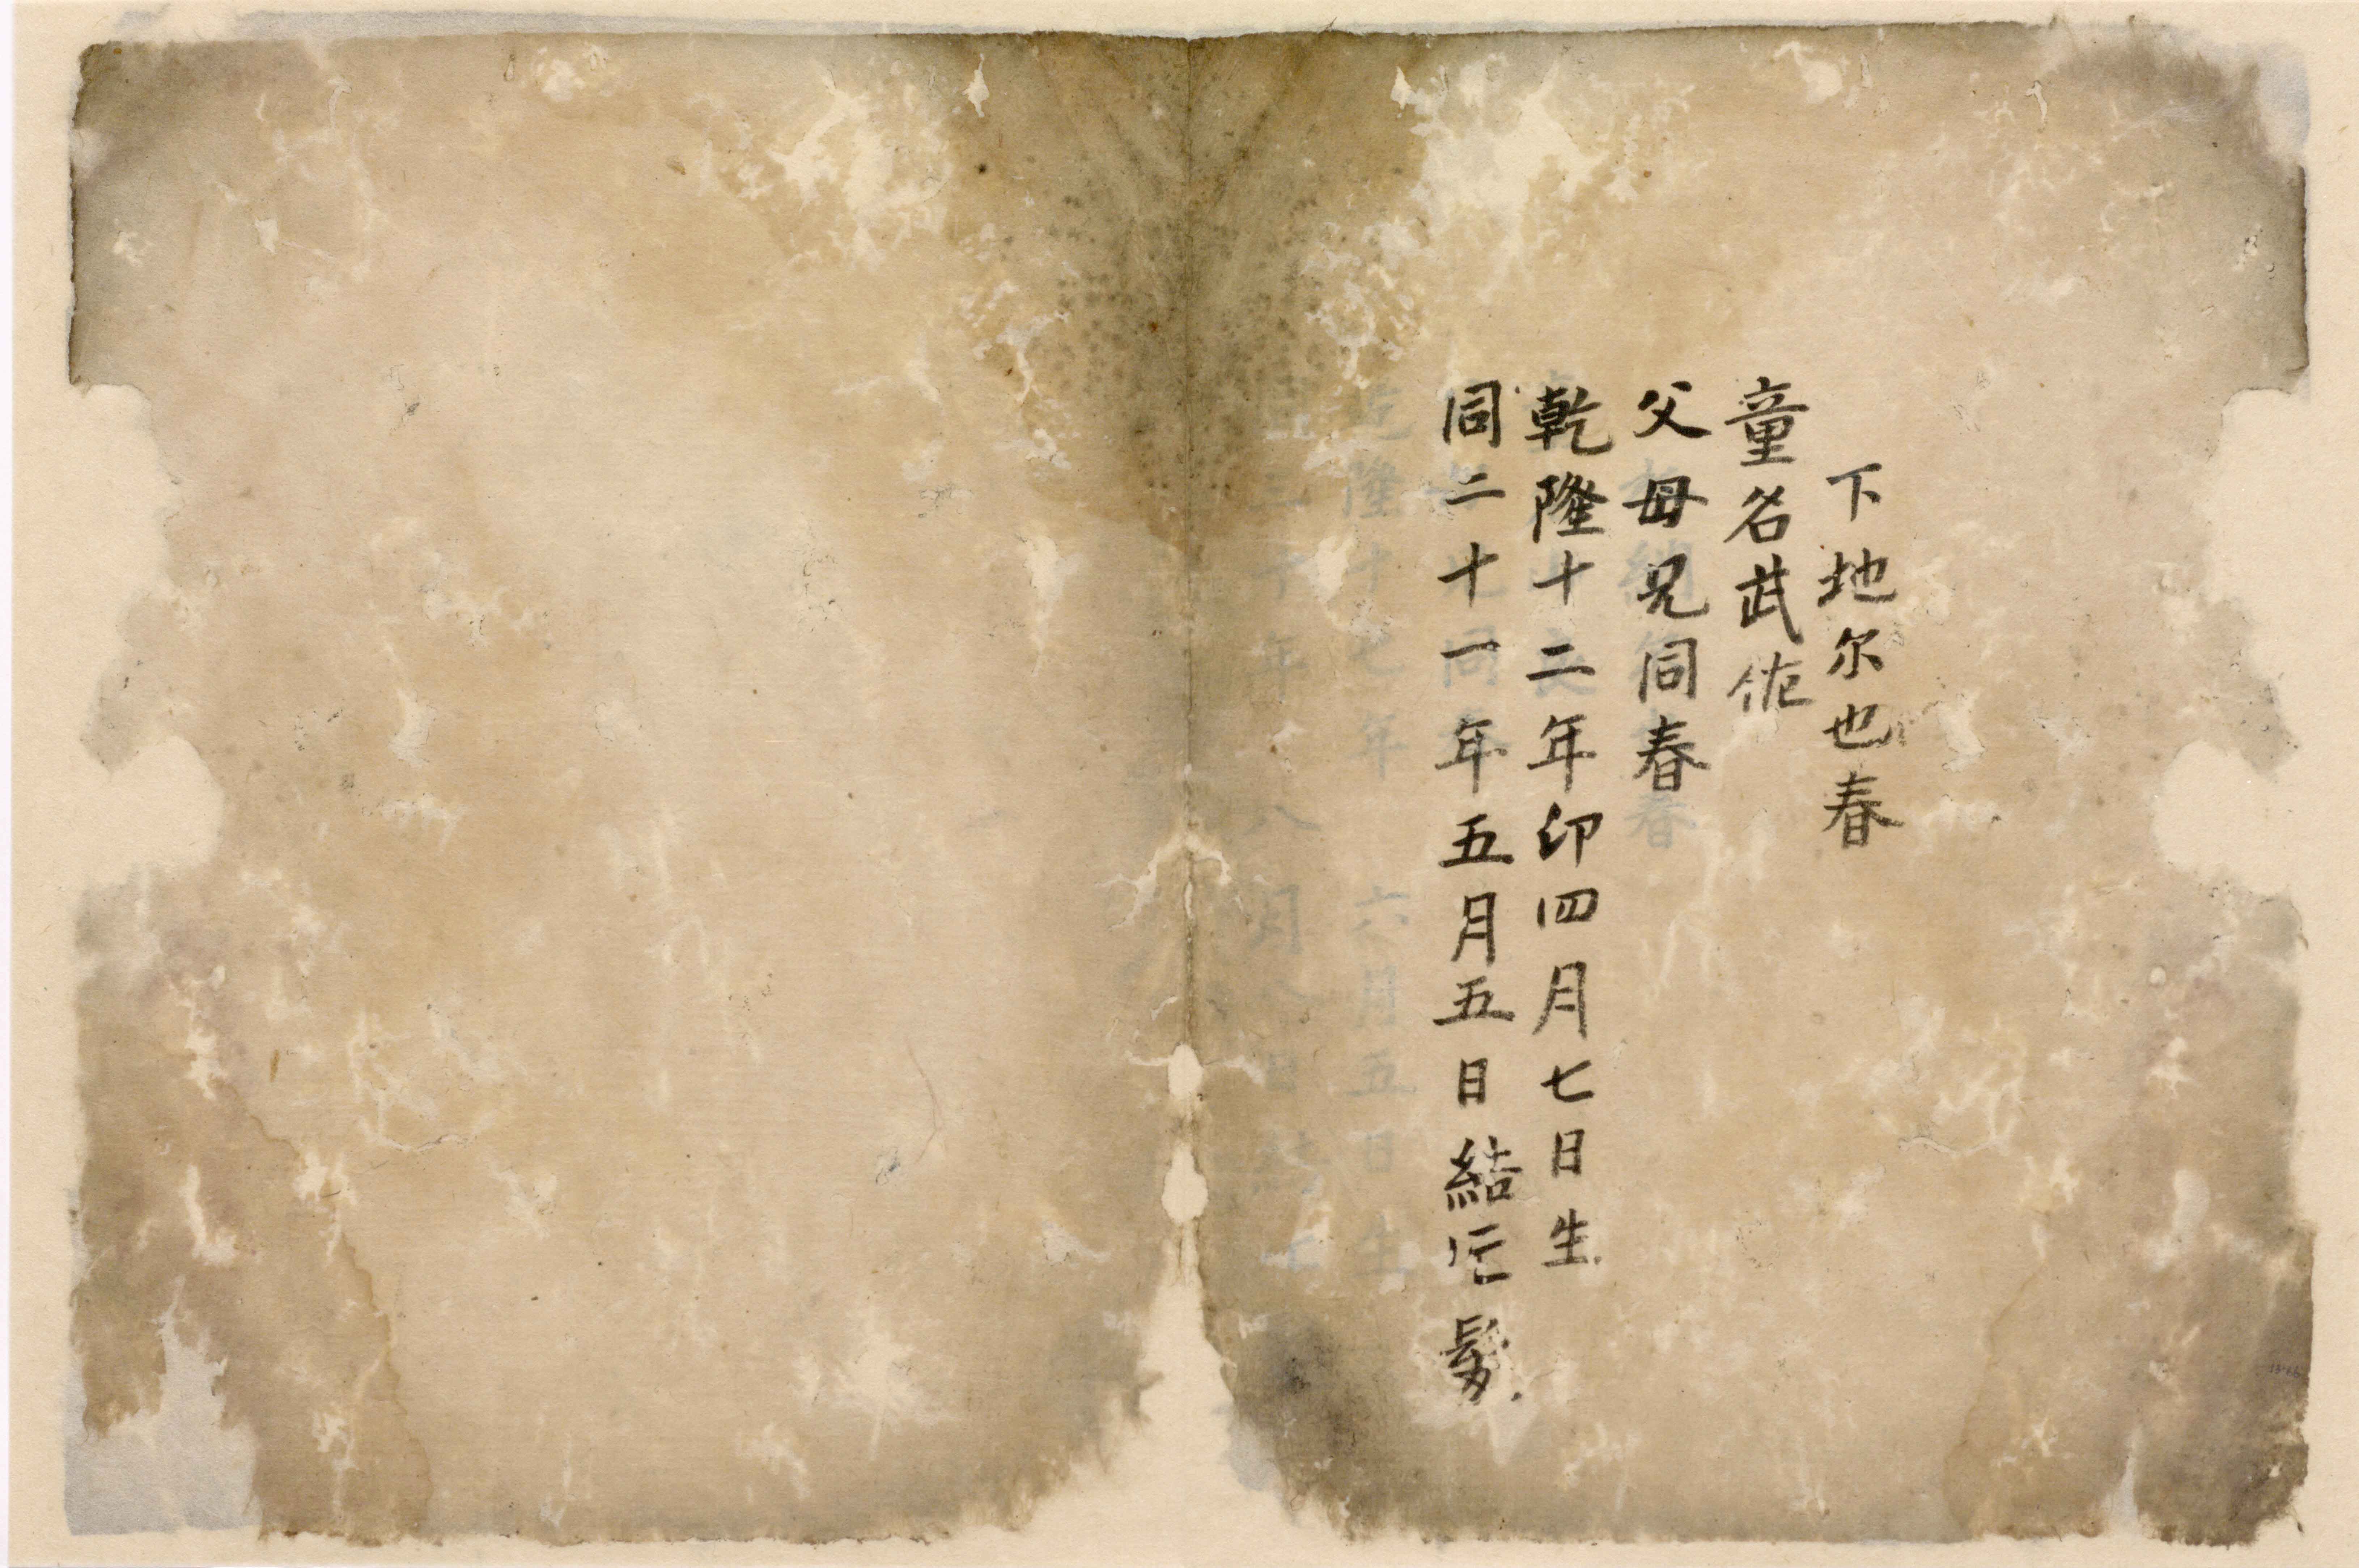 下地尔也春
童名武佐
父母兄同春
乾隆十二年卯四月七日生
同二十一年五月五日結
髪